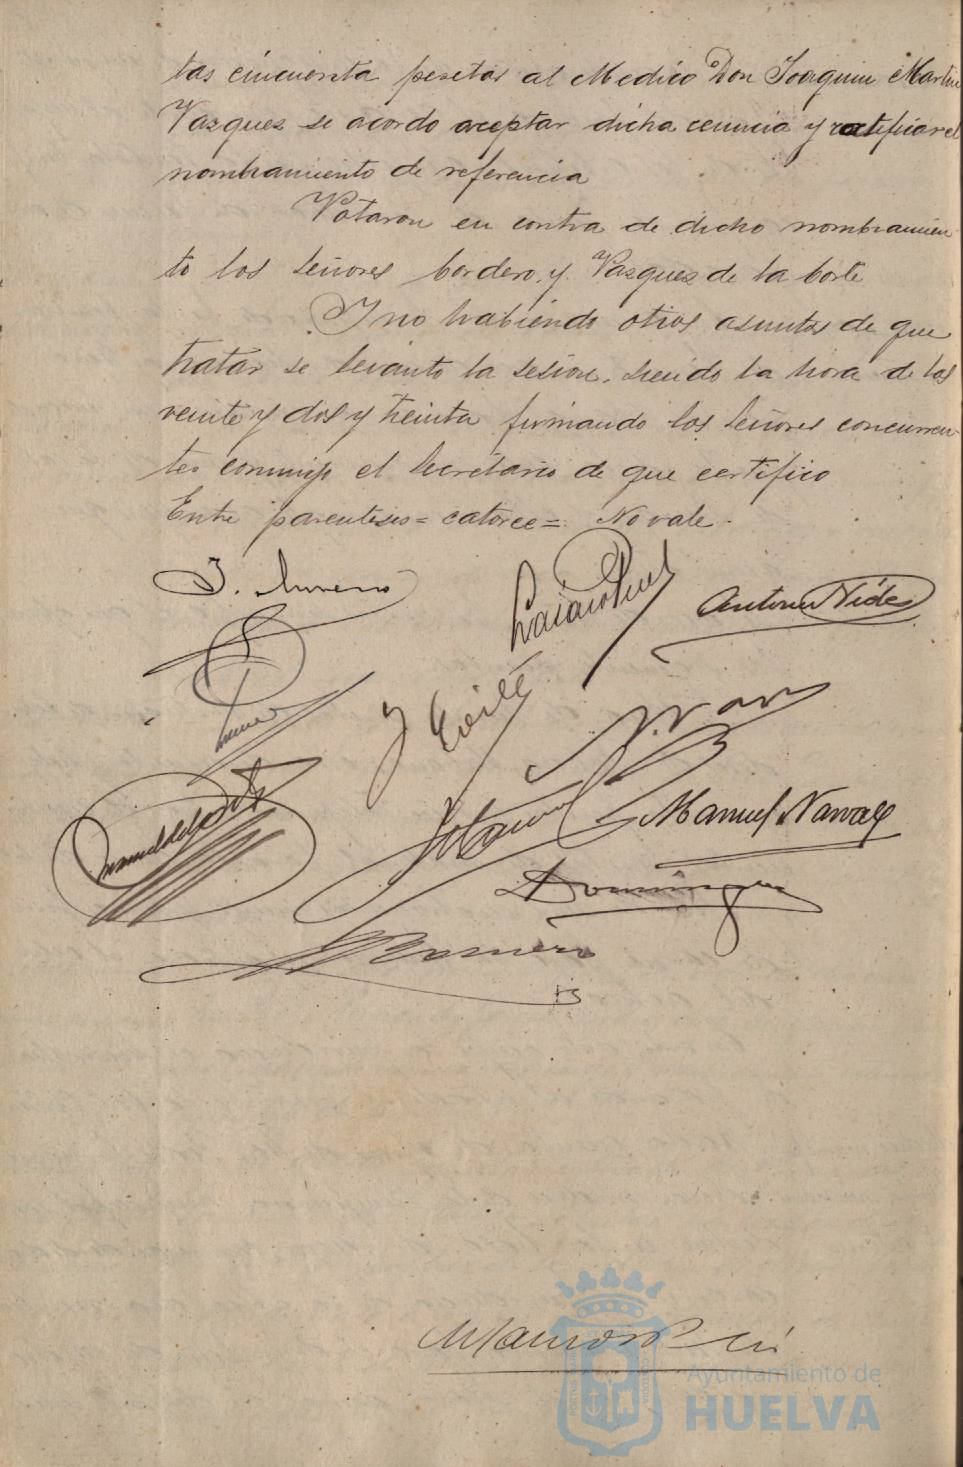 tas cincuenta pesetas al Medico Don Joaquin Martin
Vazquez se acordo aceptar dicha renuncia y ratificar el
nombramiento de referencia
Votaron en contra de dicho nombramien
to los Señores Cordero y Vazquez de la Corte
I no habiendo otros asuntos de que
tratar se levanto la sesion, siendo la hora de las
veinte y dos y treinta firmando los Señores concurren-
tes conmigo el Secretario de que certifico
Entre parentesis = catorce = No vale.
J. Moreno
Antonio Vides
Manuel Navas
Dominguez
Romero
Ayuntamiento de
HUELVA